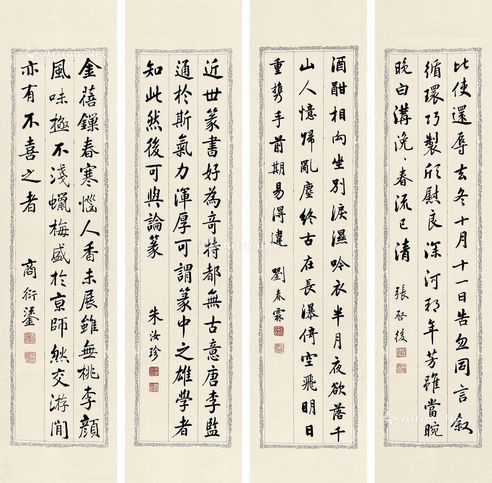 比使還辱去冬十月十一日告忽同言叙
循環巧製慰良深河朔年芳雖當晼
晚白溝浼、春流已清 張啓後
酒酣相向坐別淚濕吟衣半月夜欲落千
山人憶歸亂塵終古在長瀑倚空飛明日
重攜手前期易得違 劉春霖
近世篆書好為奇特都無古意唐李監
通於斯氣力渾厚可謂篆中之雄學者
知此然後可與論篆 朱汝珍
金蓓鏁春寒惱人香未展雖無桃李顏
風味極不淺蠟梅盛於京師然交游間
亦有不喜之者 商衍鎏